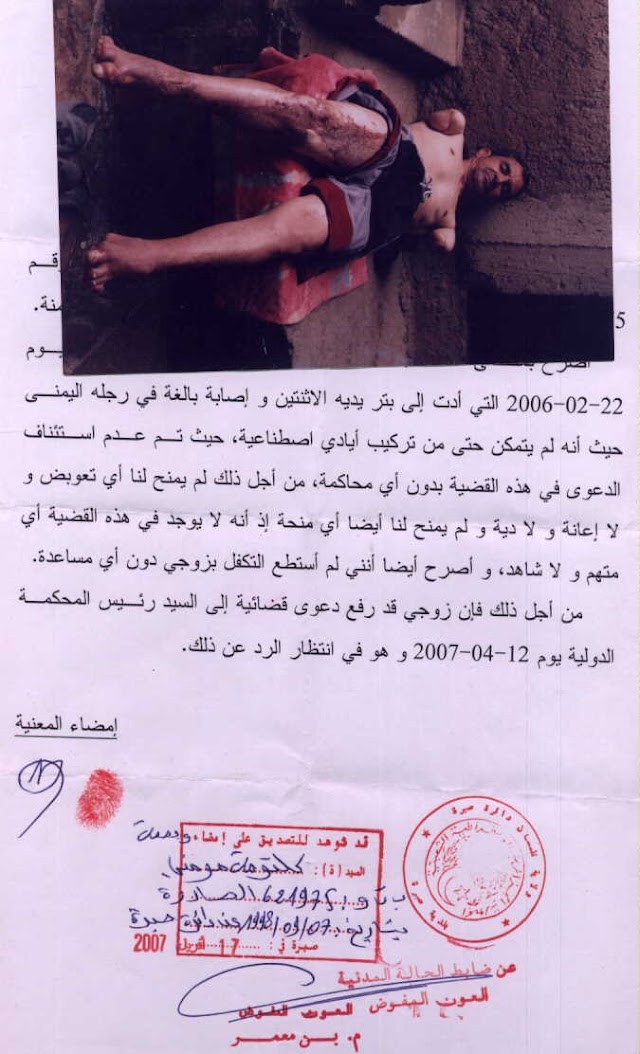 رقم
5
منة.
يوم
22-02-2006 التي أدت إلى بتر يديه الاثنتين و إصابة بالغة في رجله اليمنى
حيث أنه لم يتمكن حتى من تركيب أيادي اصطناعية، حيث تم عدم استئناف
الدعوى في هذه القضية بدون أي محاكمة، من أجل ذلك لم يمنح لنا أي تعويض و
لا إعانة و لا دية و لم يمنح لنا أيضا أي منحة إذ أنه لا يوجد في هذه القضية أي
متهم و لا شاهد، و أصرح أيضا أنني لم أستطع التكفل بزوجي دون أي مساعدة.
من أجل ذلك فإن زوجي قد رفع دعوى قضائية إلى السيد رئيس المحكمة
الدولية يوم 12-04-2007 و هو في انتظار الرد عن ذلك.
إمضاء المعنية
ولاية تلمسان دائرة صبرة
بلدية صبرة
قد شوهد للتصديق على إمضاء وبصمة
السيد (ة) :
62197 الصادرة
بتاريخ: 1998/09/07 عن دائرة صبرة
صبرة في : 17 أفريل 2007
عن ضابط الحالة المدنية
العون المفوض
العون المفوض
م. بن معمر